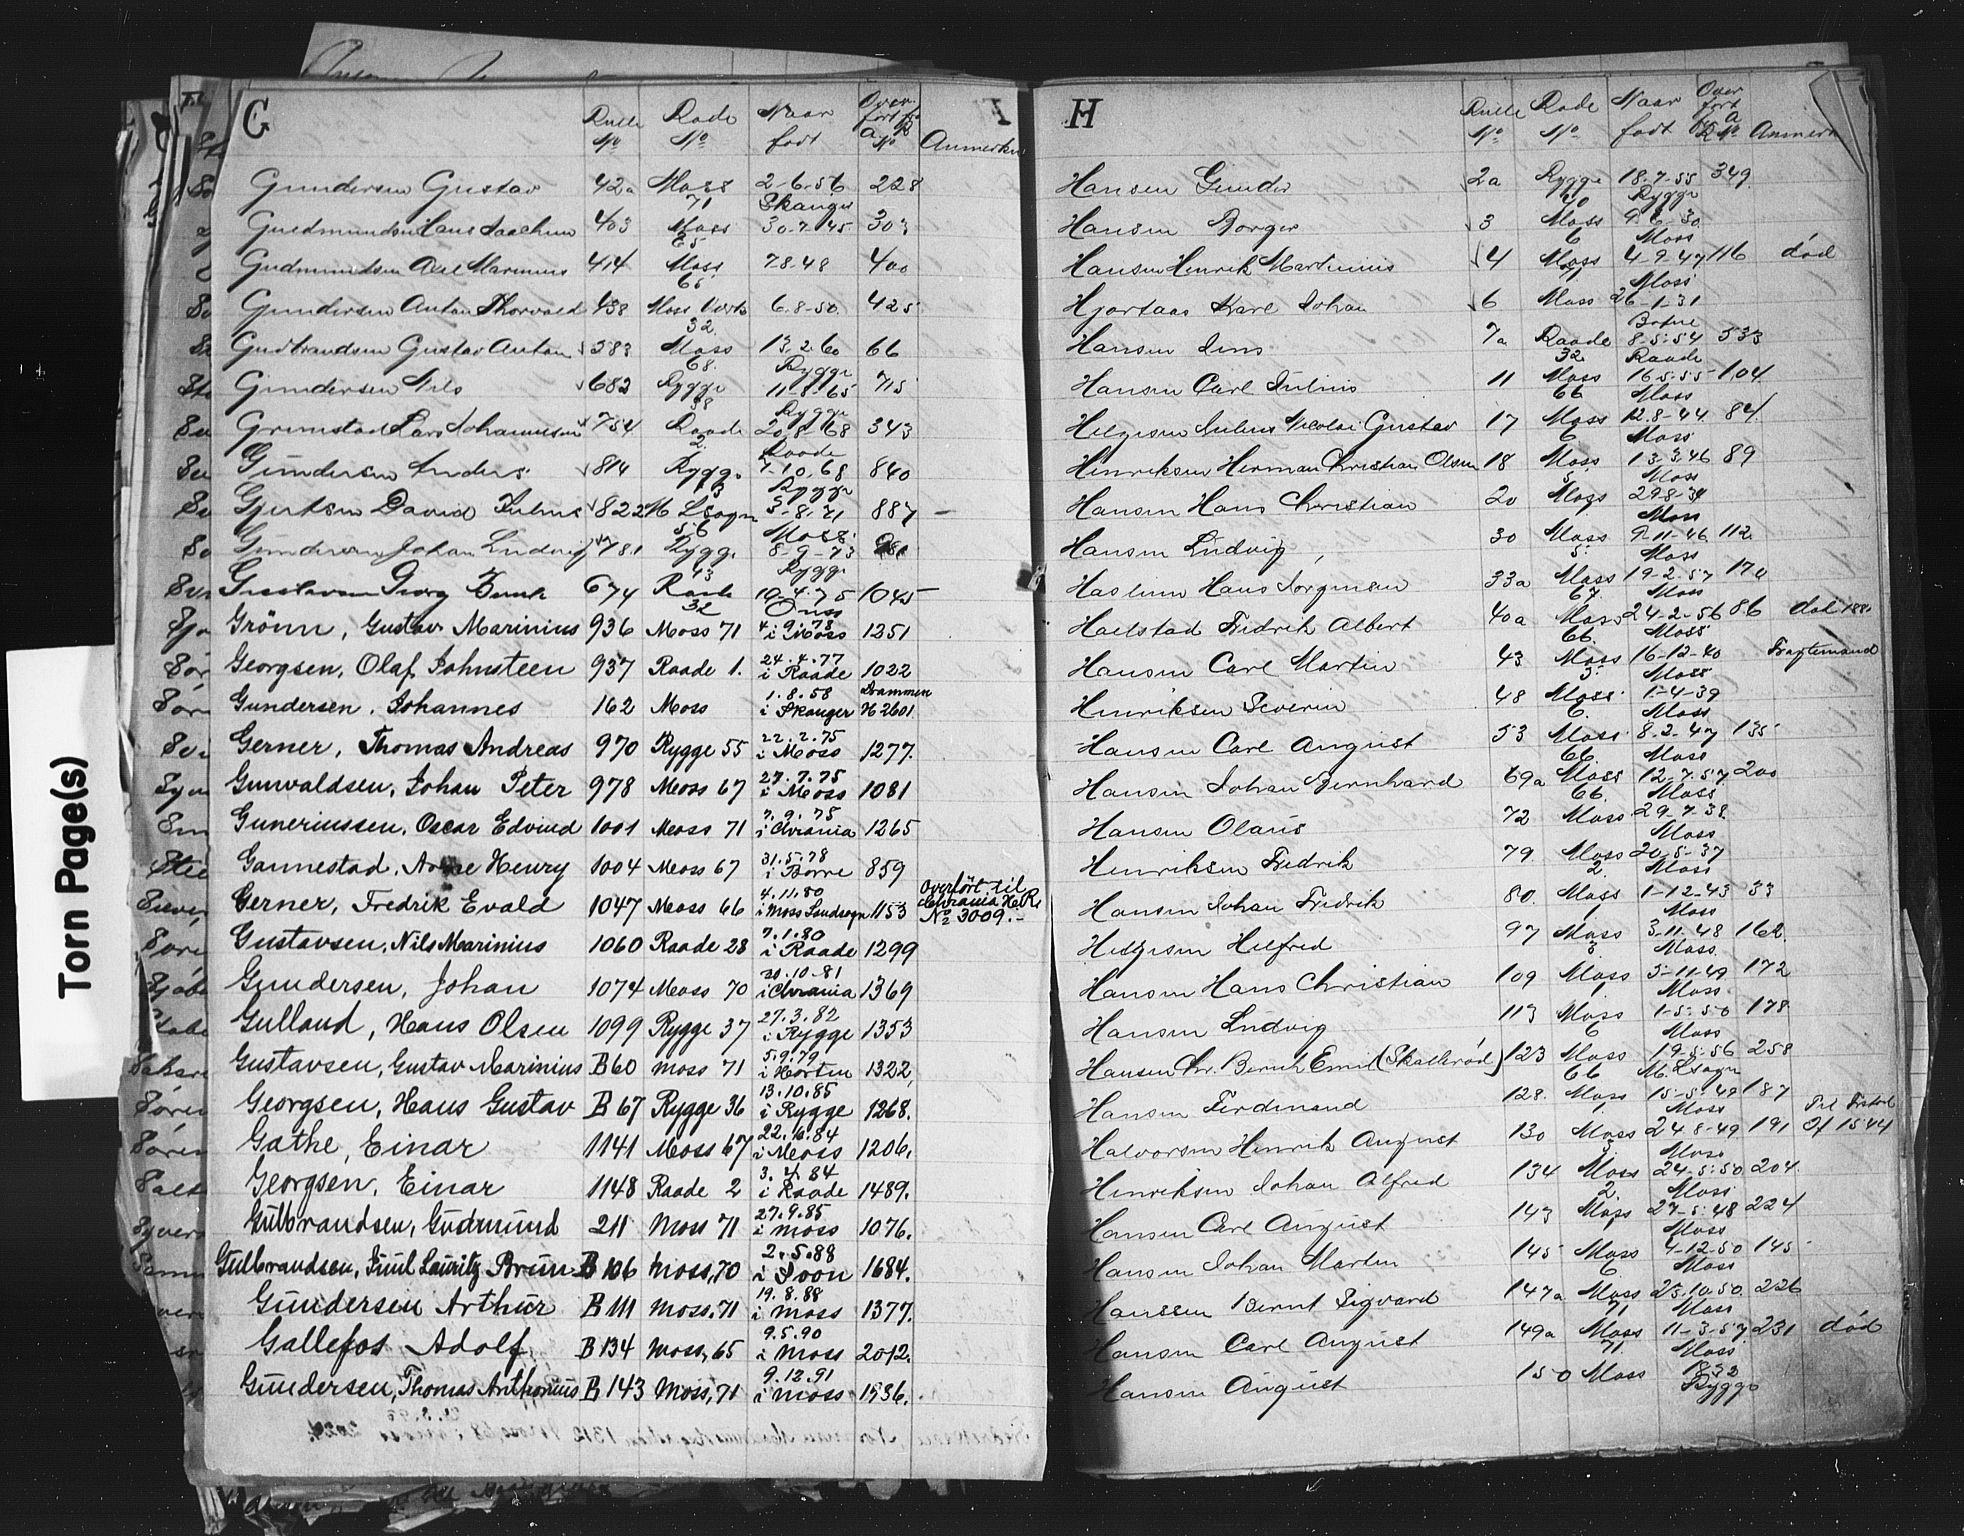 G Rulle No Rode No Naar født Overført fr a B No Anmerkn
Gundersen Gustav 42a Moss 71 2-6-56 Skanger 228
Gudmundsen Hans Joachim 403 Moss 65 30-7-45 303
Gudmundsen Axel Marinius 414 Moss 66 7-8-48 400
Gundersen Anton Thorvald 438 Moss 32 6-8-50 425
Gudbrandsen Gustav Anton 583 Moss 68 13-2-60 Rygge 66
Gundersen Nils 682 Rygge 38 11-8-65 Rygge 715
Grimstad Lars Johannesen 754 Raade 2 20-8-68 Raade 343
Gundersen Anders 814 Rygge 13 7-10-68 Rygge 840
Gjertsen David Julius 822 M Lsogn 56 3-8-71 Moss 887 -
Gundersen Johan Ludvig 781 Rygge 43 8-9-73 Rygge
Gustavsen Georg 674 Raade 32 10-4-75 Onsø 1045
Grönn, Gustav Marinius 936 Moss 71 4.9.78 i Moss 1251
Georgsen, Olaf Johnsteen 937 Raade 1. 24.4.77 i Raade 1022
Gundersen, Johannes 162 Moss 1.8.58 i Skanger Drammen H 2601
Gerner, Thomas Andreas 970 Rygge 55 22.2.75 i Moss 1277.
Gunvaldsen, Johan Peter 978 Moss 67 27.7.75 i Moss 1081
Guneriussen, Oscar Edvind 1001 Moss 71 7.9.75 i Chrania 1265
Gannestad, Arne Henry 1004 Moss 67 31.5.78 i Borre 859
Gerner, Fredrik Evald 1047 Moss 66 4.11.80 i Moss Landsogn 1153 Overført til Chrania H.R. No 3009.-
Gustavsen, Nils Marinius 1060 Raade 28 7.1.80 i Raade 1299
Gundersen, Johan 1074 Moss 70 20.10.81 i Chrania 1369
Gulland, Hans Olsen 1099 Rygge 37 27.3.82 i Rygge 1353
Gustavsen, Gustav Marinius B 60 Moss 71 5.9.79 i Horten 1322
Georgsen, Hans Gustav B 67 Rygge 36 13.10.85 i Rygge 1268.
Gathe, Einar 1141 Moss 67 22.10.84 i Moss 1206.
Georgsen, Einar 1148 Raade 2 3.4.84 i Raade 1489.
Gulbrandsen, Gudmund 211 Moss 71 27.9.85 i Moss 1076.
Gulbrandsen, Emil Lauritz Brun B 106 Moss, 70 2.5.88 i Soon 1684.
Gundersen Arthur B 111 Moss, 71 19.8.88 i Moss 1377.
Gallefos Adolf B 134 Moss, 65 9.5.90 i Moss 2012.
Gundersen, Thomas Anthonius B 143 Moss, 71 9.12.91 i Moss 1536.
H Rulle No Rode No Naar født Overført fra B No Anmerkn
Hansen Gunder 2a Rygge 18-7-55 Rygge 349
Hansen Borger 3 Moss 6 9-6-30 Moss
Hansen Henrik Martinius 4 Moss 4-9-47 Moss 116 död
Hjortaas Karl Johan 6 Moss 26-1-31 Botne
Hansen Jens 7a Raade 32 8-5-54 Raade 533
Hansen Carl Julius 11 Moss 66 16-5-55 Moss 104
Helgesen Julius Nicolai Gustav 17 Moss 6 12-8-44 Moss 84
Henriksen Herman Christian Olsen 18 Moss 5 13-3-46 Moss 89
Hansen Hans Christian 20 Moss 29-8-34 Moss
Hansen Ludvig 30 Moss 5 9-11-46 Moss 112
Haslum Hans Jørgensen 33a Moss 67 19-2-57 Moss 170
Haelstad Fredrik Albert 40a Moss 66 24-2-56 Moss 86
Hansen Carl Martin 43 Moss 3 16-12-40 Moss Fragtemand
Henriksen Severin 48 Moss 6 1-4-39 Moss
Hansen Carl August 53 Moss 66 8-2-47 Moss 135
Hansen Johan Bernhard 69a Moss 66 12-7-57 Moss 200
Hansen Olaus 72 Moss 29-7-38 Moss
Henriksen Fredrik 79 Moss 2 20-5-37 Moss
Hansen Johan Fredrik 80 Moss 1 1-12-43 Moss 33
Helgesen Helfred 97 Moss 3 3-11-48 Moss 162
Hansen Hans Christian 109 Moss 1 3-11-49 Moss 172
Hansen Ludvig 113 Moss 6 1-5-50 Moss 178
Hansen Chr. Bernh Emil (Skallerød) 123 Moss 66 19-5-56 M. Lsogn 258
Hansen Ferdinand 128 Moss 1 15-5-49 Moss 187
Halvorsen Henrik August 130 Moss 3 24-8-49 Moss 191 Til Frstad Of 1544
Henriksen Johan Alfred 134 Moss 2 24-5-50 Moss 204
Hansen Carl August 143 Moss 1 27-5-48 Moss 224
Hansen Johan Martin 145 Moss 6 4-12-50 Moss 145
Hanssen Bernt Sigvard 147a Moss 71 23-10-50 Moss 226
Hansen Carl August 149a Moss 71 11-3-57 Moss 231 död
Hansen August 150 Moss 1832 Rygge
Torn Page(s)